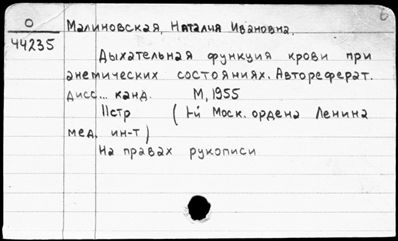 О
44235
Малиновская, Наталия Ивановна.
Дыхательная функция крови при
анемических состояниях. Автореферат.
дисс... канд. М, 1955
11стр (1-й Моск. ордена Ленина
мед. ин-т)
На правах рукописи